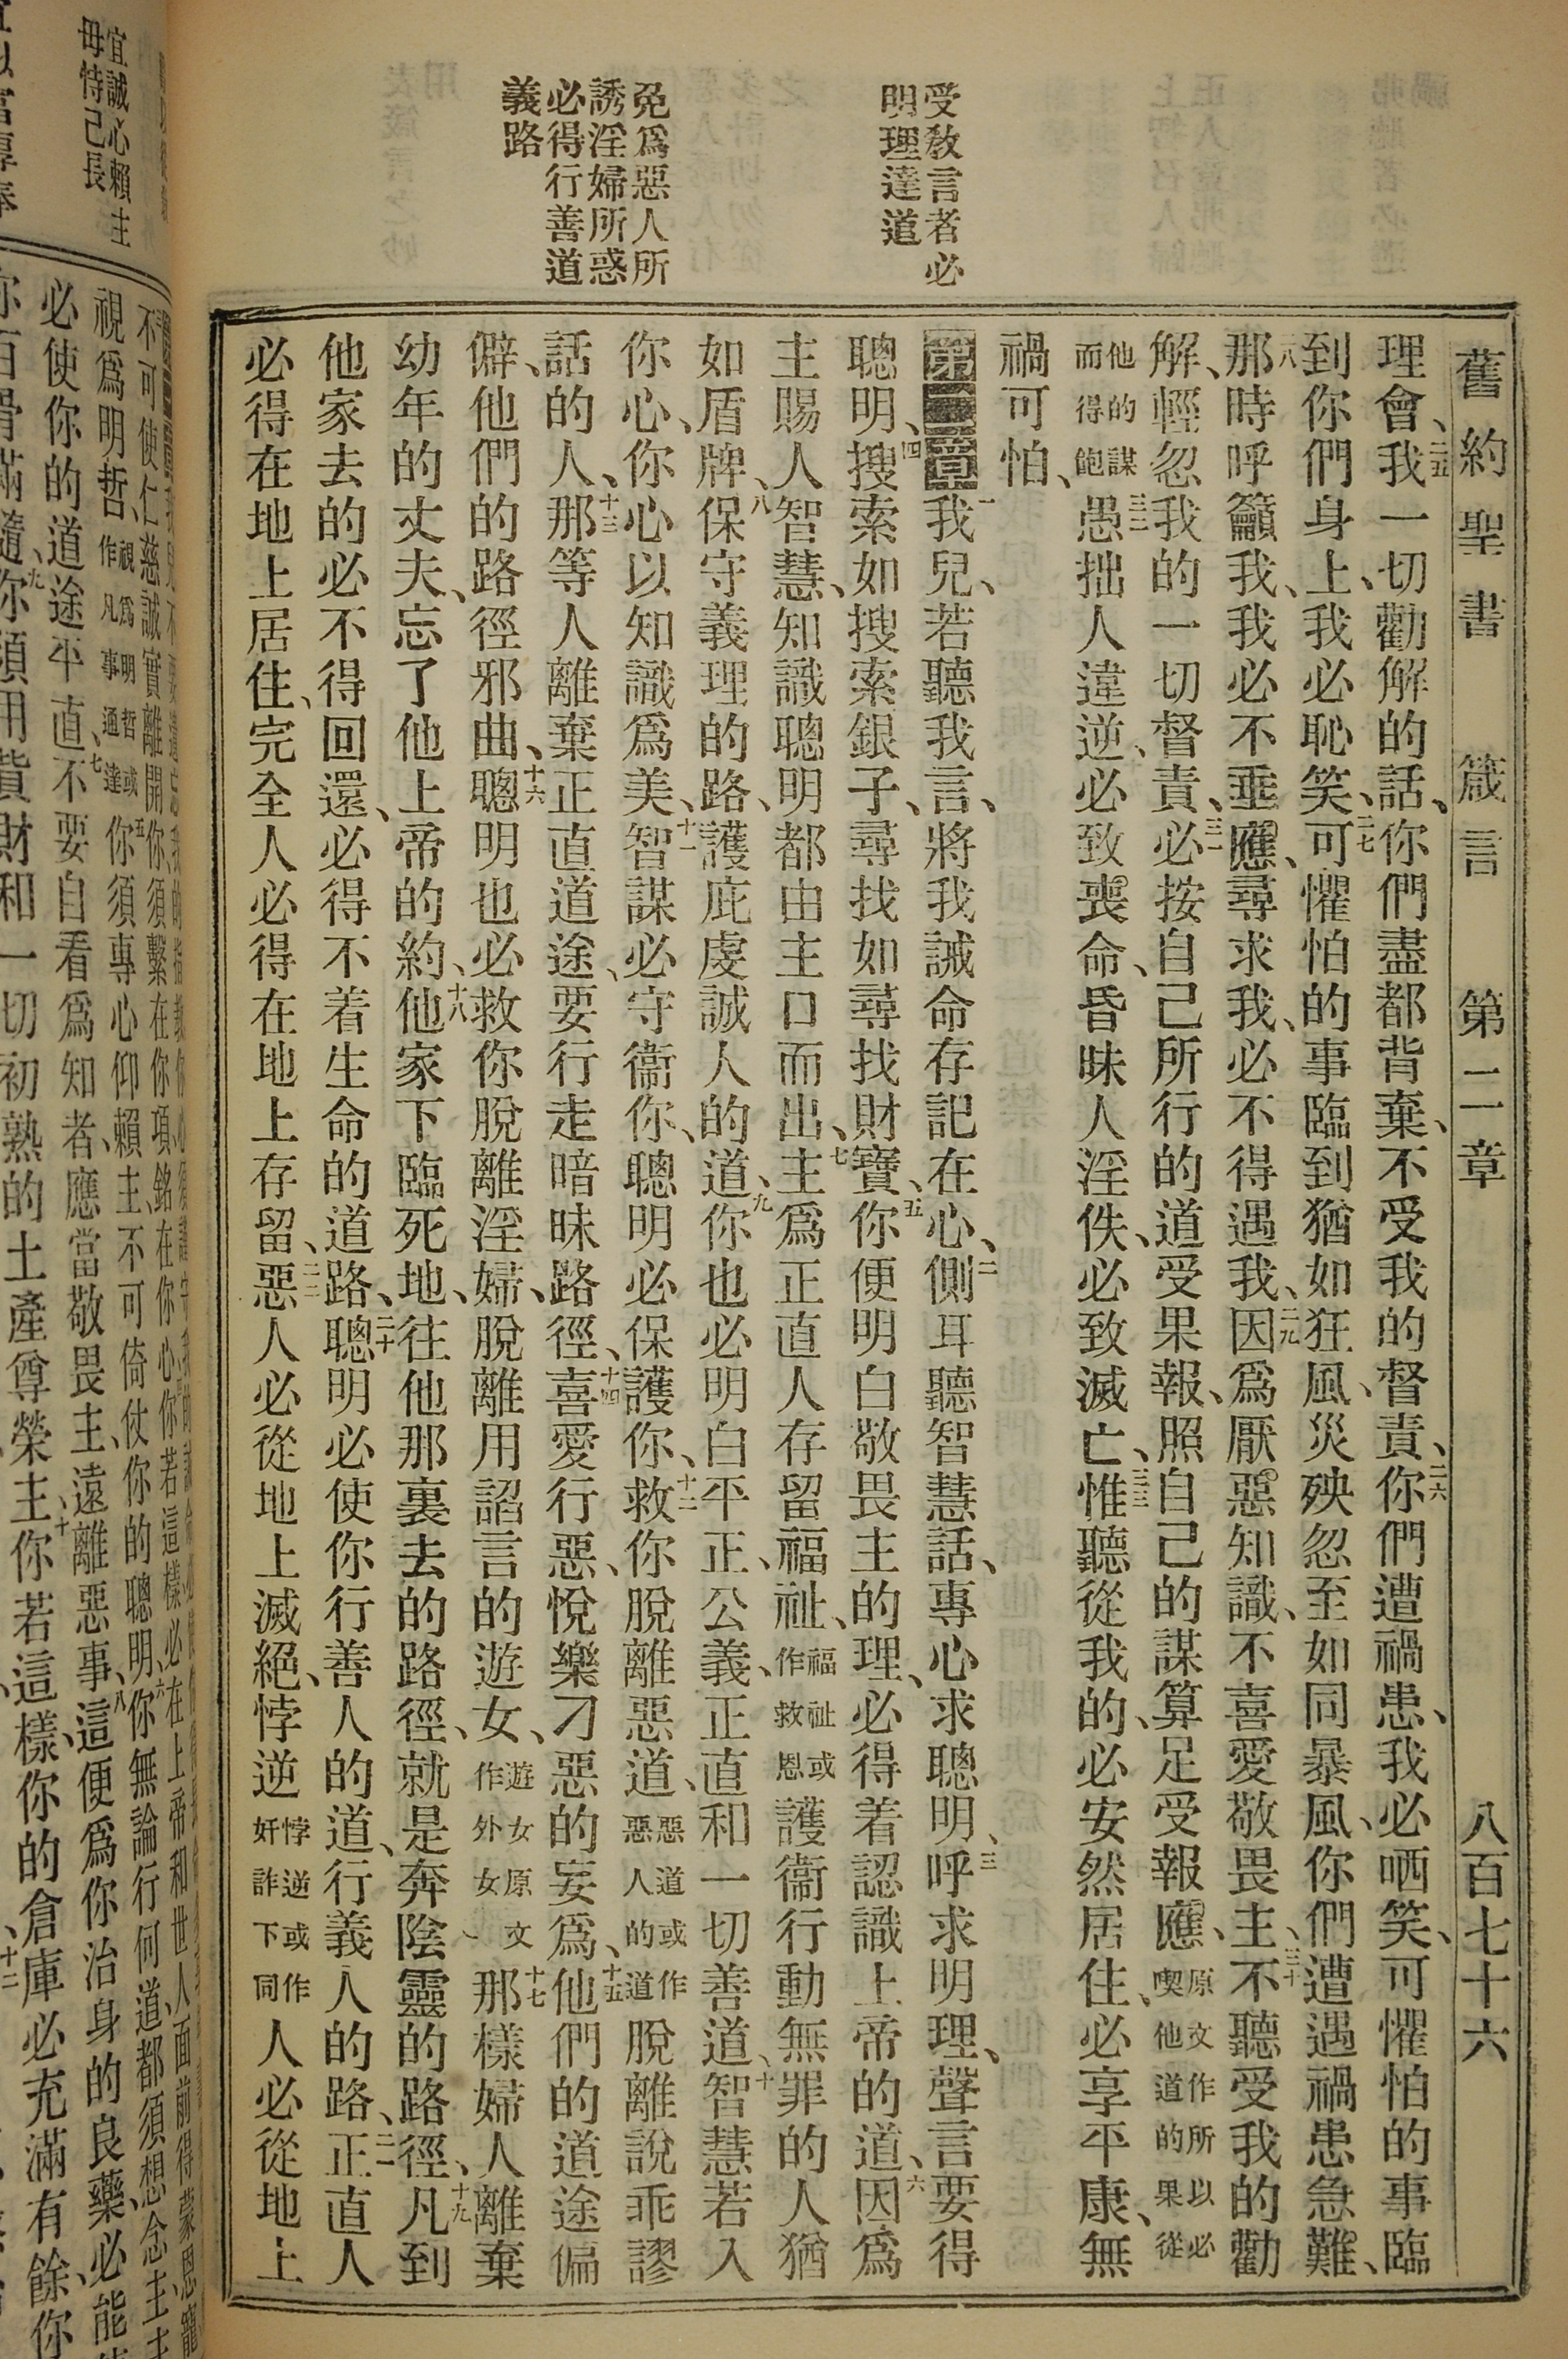 舊約聖書 箴言 第二章 八百七十六
受教言者必
明理達道
免爲惡人所
誘淫婦所惑
必得行善道
義路
理會、二五我一切勸解的話、你們盡都背棄、不受我的督責、二六你們遭禍患、我必哂笑、可懼怕的事臨
到你們身上、我必恥笑、二七可懼怕的事臨到猶如狂風、災殃忽至如同暴風、你們遭遇禍患急難、
二八那時呼籲我、我必不垂應、尋求我、必不得遇我、二九因爲厭惡知識、不喜愛敬畏主、三十不聽受我的勸
解、輕忽我的一切督責、三一必按自己所行的道受果報、照自己的謀算足受報應、原文作所以必喫他道的果從
他的謀而得飽 三二愚拙人違逆、必致喪命、昏昧人淫佚、必致滅亡、三三惟聽從我的、必安然居住、必享平康、無
禍可怕、
第二章 一我兒、若聽我言、將我誡命存記在心、二側耳聽智慧話、專心求聰明、三呼求明理、聲言要得
聰明、四搜索如搜索銀子、尋找如尋找財寶、五你便明白敬畏主的理、必得着認識上帝的道、六因爲
主賜人智慧、知識聰明都由主口而出、七主爲正直人存留福祉、福祉或作救恩 護衞行動無罪的人猶
如盾牌、八保守義理的路、護庇虔誠人的道、九你也必明白平正、公義、正直和一切善道、十智慧若入
你心、你心以知識爲美、十一智謀必守衞你、聰明必保護你、十二救你脫離惡道、惡道或作惡人的道 脫離說乖謬
話的人、十三那等人離棄正直道途、要行走暗昧路徑、十四喜愛行惡、悅樂刁惡的妄爲、十五他們的道途偏
僻、他們的路徑邪曲、十六聰明也必救你脫離淫婦、脫離用諂言的遊女、遊女原文作外女 十七那樣婦人離棄
幼年的丈夫、忘了他上帝的約、十八他家下臨死地、往他那裏去的路徑、就是奔陰靈的路徑、十九凡到
他家去的必不得回還、必得不着生命的道路、二十聰明必使你行善人的道、行義人的路、二一正直人
必得在地上居住、完全人必得在地上存留、二二惡人必從地上滅絕、悖逆 悖逆或作奸詐下同 人必從地上
宜誠心賴主
毋恃己長
不可使仁慈誠實離開你、須繫在你項、銘在你心、你若這樣、必在上帝和世人面前得蒙恩寵
視爲明哲、視爲明哲或作凡事通達 五你須專心仰賴主、不可倚仗你的聰明、六你無論行何道、都須想念主、主
必使你的道途平直、七不要自看爲知者、應當敬畏主、遠離惡事、八這便爲你治身的良藥、必能
九你須用貲財和一切初熟的土產尊榮主、十你若這樣、你的倉庫必充滿有餘、你